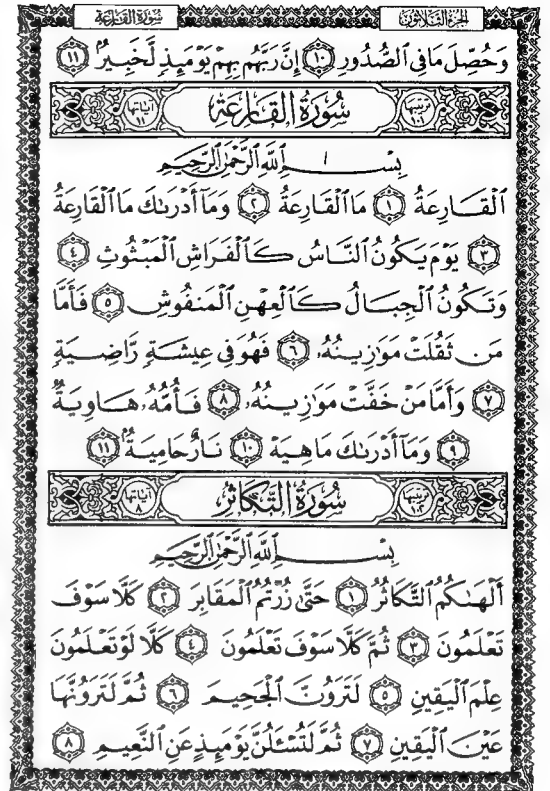 الجزء الثلاثون سورة القارعة
وَحُصِّلَ مَا فِي ٱلصُّدُورِ ١٠ إِنَّ رَبَّهُم بِهِمْ يَوْمَئِذٍ لَّخَبِيرٌۢ ١١
ترتيبها سُورَةُ القَارِعَةِ آياتها
بِسْمِ ٱللَّهِ ٱلرَّحْمَٰنِ ٱلرَّحِيمِ
ٱلْقَارِعَةُ ١ مَا ٱلْقَارِعَةُ ٢ وَمَآ أَدْرَىٰكَ مَا ٱلْقَارِعَةُ
٣ يَوْمَ يَكُونُ ٱلنَّاسُ كَٱلْفَرَاشِ ٱلْمَبْثُوثِ ٤
وَتَكُونُ ٱلْجِبَالُ كَٱلْعِهْنِ ٱلْمَنفُوشِ ٥ فَأَمَّا
مَن ثَقُلَتْ مَوَٰزِينُهُۥ ٦ فَهُوَ فِي عِيشَةٍ رَّاضِيَةٍ
٧ وَأَمَّا مَنْ خَفَّتْ مَوَٰزِينُهُۥ ٨ فَأُمُّهُۥ هَاوِيَةٌ
٩ وَمَآ أَدْرَىٰكَ مَا هِيَهْ ١٠ نَارٌ حَامِيَةٌۢ ١١
ترتيبها ١٠٢ سُورَةُ التَّكَاثُرِ آياتها ٨
بِسْمِ ٱللَّهِ ٱلرَّحْمَٰنِ ٱلرَّحِيمِ
أَلْهَىٰكُمُ ٱلتَّكَاثُرُ ١ حَتَّىٰ زُرْتُمُ ٱلْمَقَابِرَ ٢ كَلَّا سَوْفَ
تَعْلَمُونَ ٣ ثُمَّ كَلَّا سَوْفَ تَعْلَمُونَ ٤ كَلَّا لَوْ تَعْلَمُونَ
عِلْمَ ٱلْيَقِينِ ٥ لَتَرَوُنَّ ٱلْجَحِيمَ ٦ ثُمَّ لَتَرَوُنَّهَا
عَيْنَ ٱلْيَقِينِ ٧ ثُمَّ لَتُسْـَٔلُنَّ يَوْمَئِذٍ عَنِ ٱلنَّعِيمِ ٨